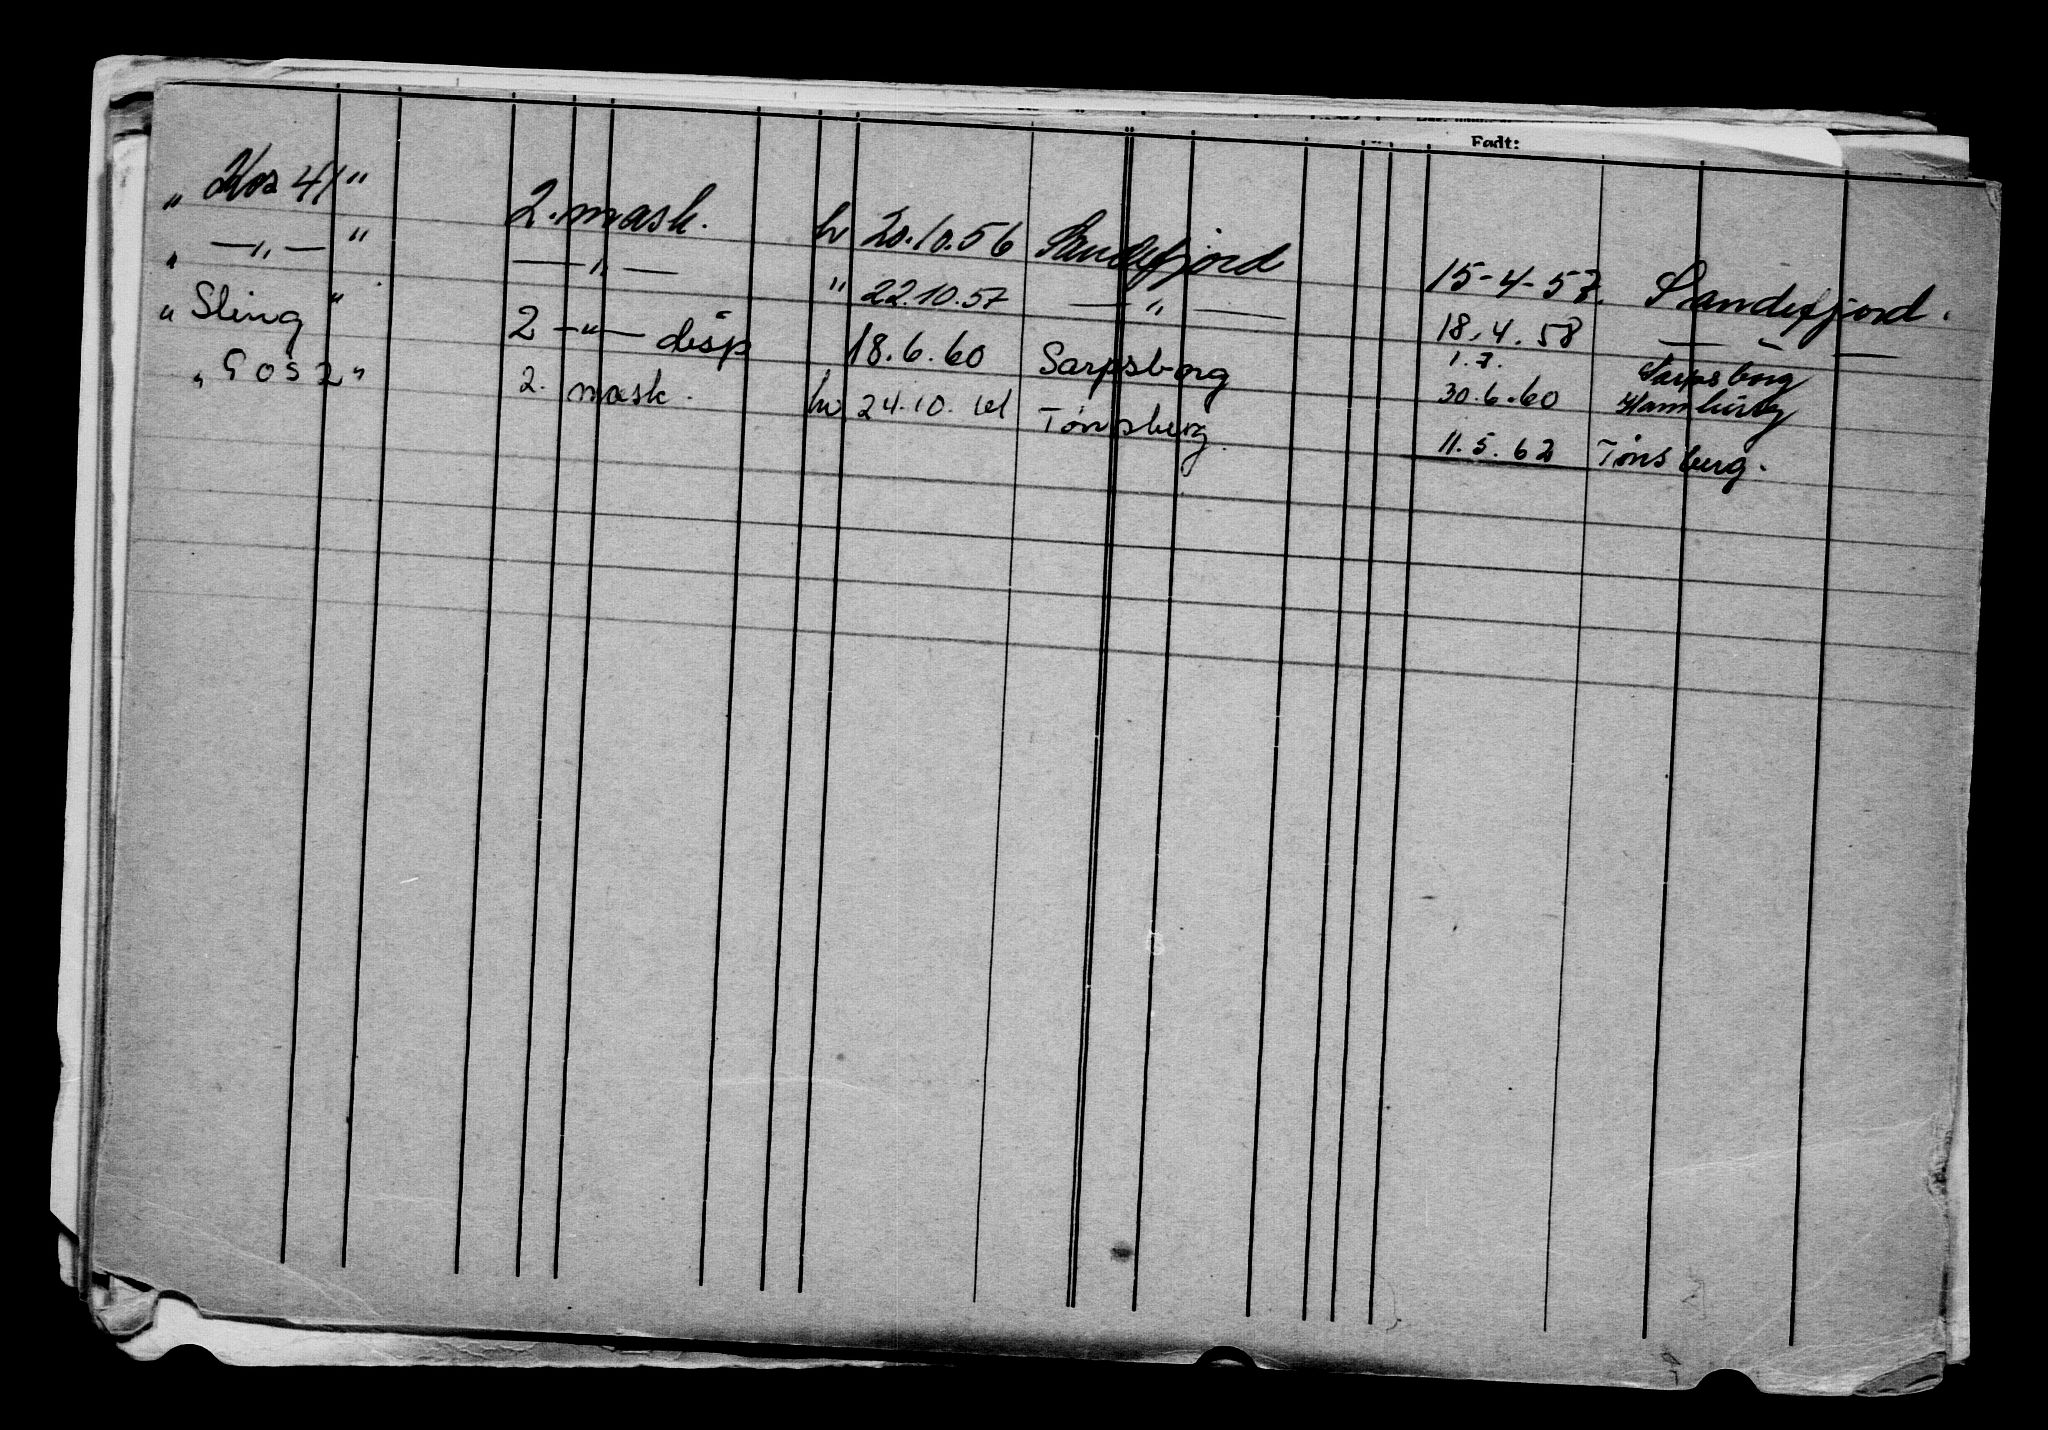 Født:
„ Kos 41" 2. mask. hv 20.10.56 Sandefjord 15-4-57. Sandefjord.
„ —„— " —„— " 22.10.57 —„— 18.4.58 — „ —
„ Sling " 2 —„— disp 18.6.60 Sarpsborg 1.7. Sarpsborg
30.6.60 Hamburg
„ Gos 2" 2. mask. hv 24.10.61 Tønsberg. 11.5.62 Tønsberg.